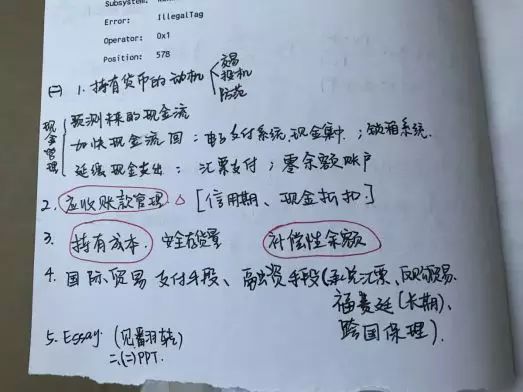 Subsystem:
Error: IllegalTag
Operator: 0x1
Position: 578
(一) 1. 持有货币的动机 交易 投机 防范
现金管理
预测未来的现金流
加快现金流回；电子支付系统、现金集中；锁箱系统.
延缓现金支出：汇票支付；零余额账户
2. 应收账款管理 △ [信用期、现金折扣]
3. 持有成本. 安全存货量 补偿性余额
4. 国际贸易支付手段、融资手段(承兑汇票、反向贸易.
福费廷(长期)、
跨国保理).
5. Essay (见翻转)
二、(二)PPT.